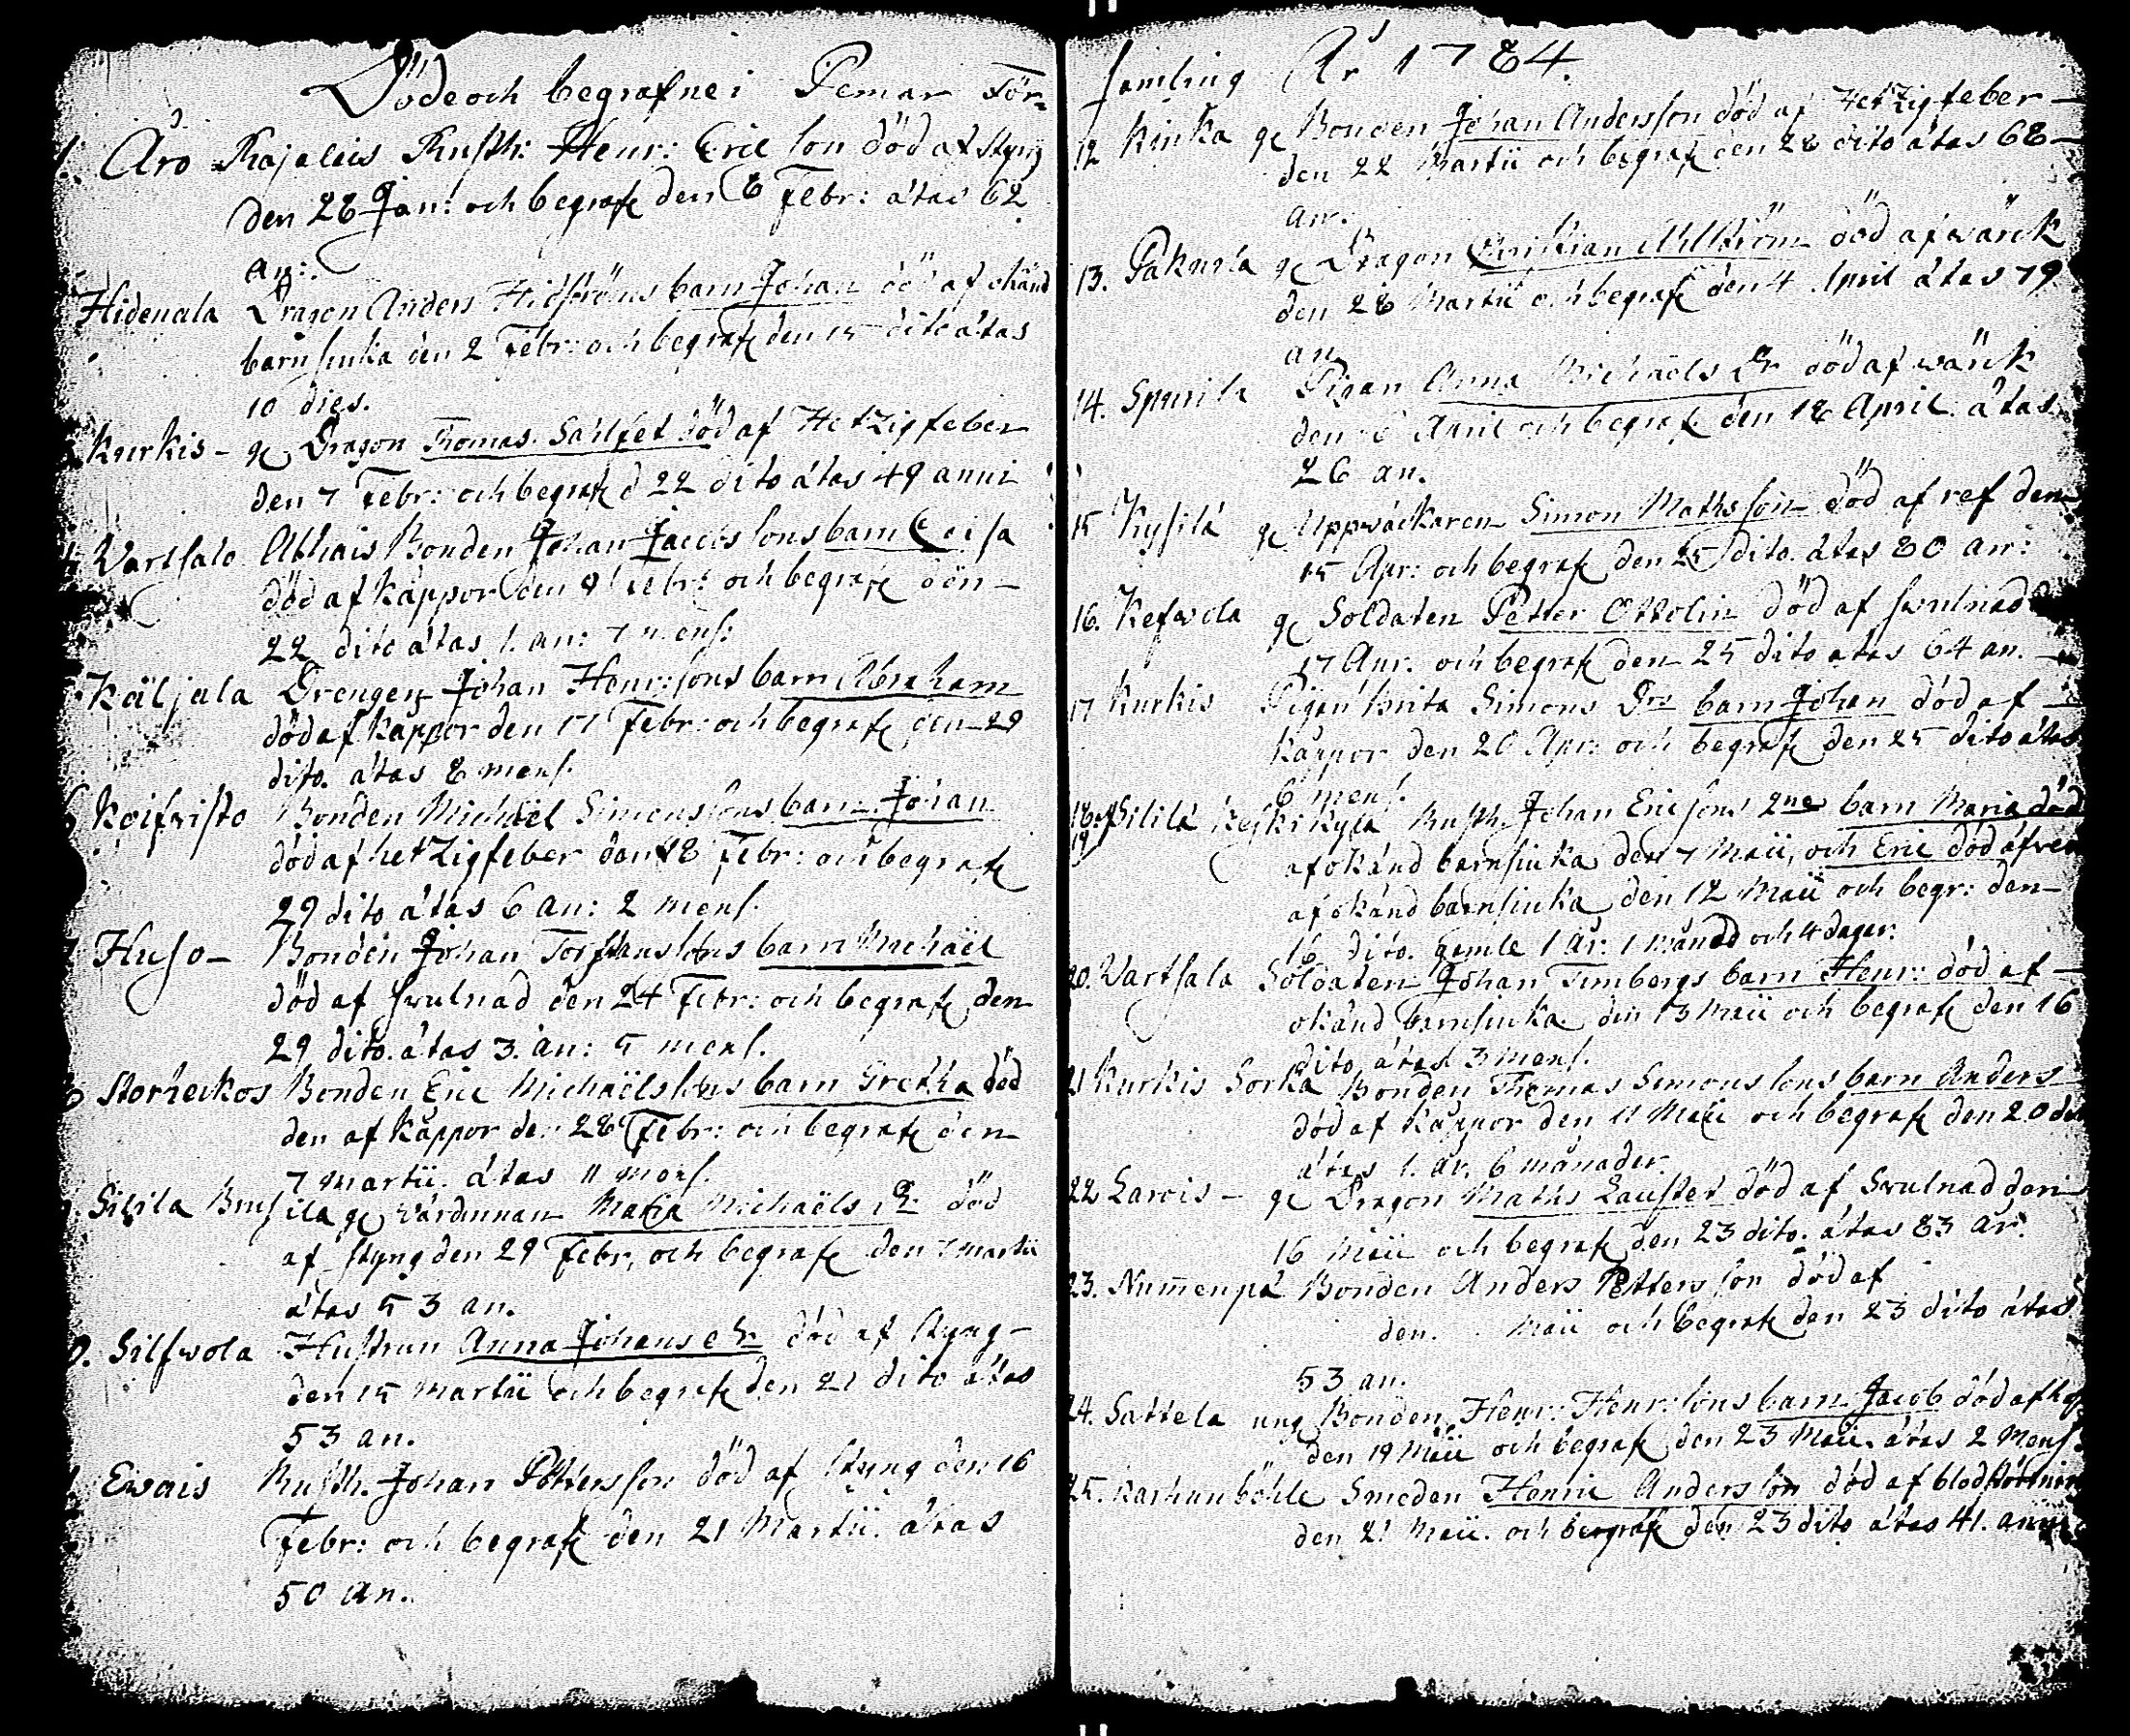 Döde och begrafne i Pemar För-
1. Äro Rajalais Rusth: Henr: Eric son död af styng
den 28 Jan: och begrafr den 8 Febr: ätas 62
an:
Hidenala Dragon Anders Hidströms barn Johan död af okänd
barnsiuka den 2 Febr: och begrafr den 15 dito ätas
10 dies.
Kurkis - gl Dragon Thomas Sahlfet död af Hetzigfeber
den 7 Febr: och begrafr d 22 dito ätas 49 anni
Wartsalo Abhais Bonden Johan Jacobs sons barn Caisa
död af kåppor den 8 Febr: och begrafr den
22 dito ätas 1. an: 7 mens:
Käljala Drengen Johan Henr: sons barn Abraham
död af kåppor den 17 Febr: och begrafr den 29
dito. ätas 8 mens.
6 Koifwisto Bonden Michäel Simons sons barn Johan
död af hetzigfeber den 18 Febr: och begrafr
29 dito ätas 6 an: 2 mens.
7 Huso- Bonden Johan barn Michäel
död af swulnad den 24 Febr: och begrafr den
29 dito. ätas 3. an: 5 mens.
8 Storheikos Bonden Eric Michaëls sons barn Gretha död
den af kåppor den 28 Febr: och begrafr den
7 Martii. ätas 11 mens.
Sifila Brusila gl wärdinnan Maria Michaëls dr död
af styng den 29 Febr, och begrafr den 7 Martii
ätas 53 an.
0. Silfwola Hustrun Anna Johans dr död af styng-
den 15 Martii och begrafr den 21 dito ätas
53 an.
Ewais Rusth. Johan Pettersson död af styng den 16
Febr: och begrafr den 21 Martii. ätas
50 an.
samling År 1784.
12 Kinka gl Bonden Johan Andersson död af Hetzigfeber-
den 22 Martii och begrafr den 28 dito ätas 68-
an.
13. Pakurla gl Dragon Christian död af wärck
den 28 Martii och begrafr den 4 April ätas 79
an
14. Spurila Pigan Anna Michaëls Dr död af wärck
den 6 April och begrafr den 18 April. ätas
26 an.
15 Kysilä gl Uppwäckaren Simon Mathsson död af ref den
15 Apr: och begrafr den 25 dito. ätas 80 an:
16. Kefwola gl Soldaten Petter Ottolin död af swulnad
17 Apr. och begrafr den 25 dito ätas 64 an.
17 Kurkis Pigan Brita Simons Drs barn Johan död af
kåppor den 20 Apr: och begrafr den 25 dito ätas
6 mens.
18. 19 Sililä Keskikylä Rusth. Johan Eric sons 2ne barn Maria död
af okänd barnsiuka den 7 Maii, och Eric död äfven
af okänd barnsiuka den 12 Maii och begr: den
16 dito. gamle 1 år. 1 månad och 4 dager.
20. Wartsala Soldaten Johan Timbergs barn Henr: död af
okänd barnsiuka den 13 Maii och begrafr den 16
dito ätas 3 mens.
21 Kurkis Sorka Bonden Thomas Simons sons barn Anders
död af kåppor den 11 Maii och begrafr den 20 do
ätas 1. år, 6 månader.
22 Larois- gl Dragon Maths Laufter död af Swulnad den
16 Maii och begrafr den 23 dito. ätas 83 år.
23. Num̄enpä Bonden Anders Petters son död af
den. Maii och begrafr den 23 dito ätas
53 an.
24. Sattela ung Bonden Henr: Henr: sons barn Jacob död af
den 19 Maii och begrafr den 23 Maii. ätas 2 Mens.
25. Karhunböhle Smeden Henric Andersson död af blodstörtning
den 21 Maii. och begrafr den 23 dito ätas 41. anni